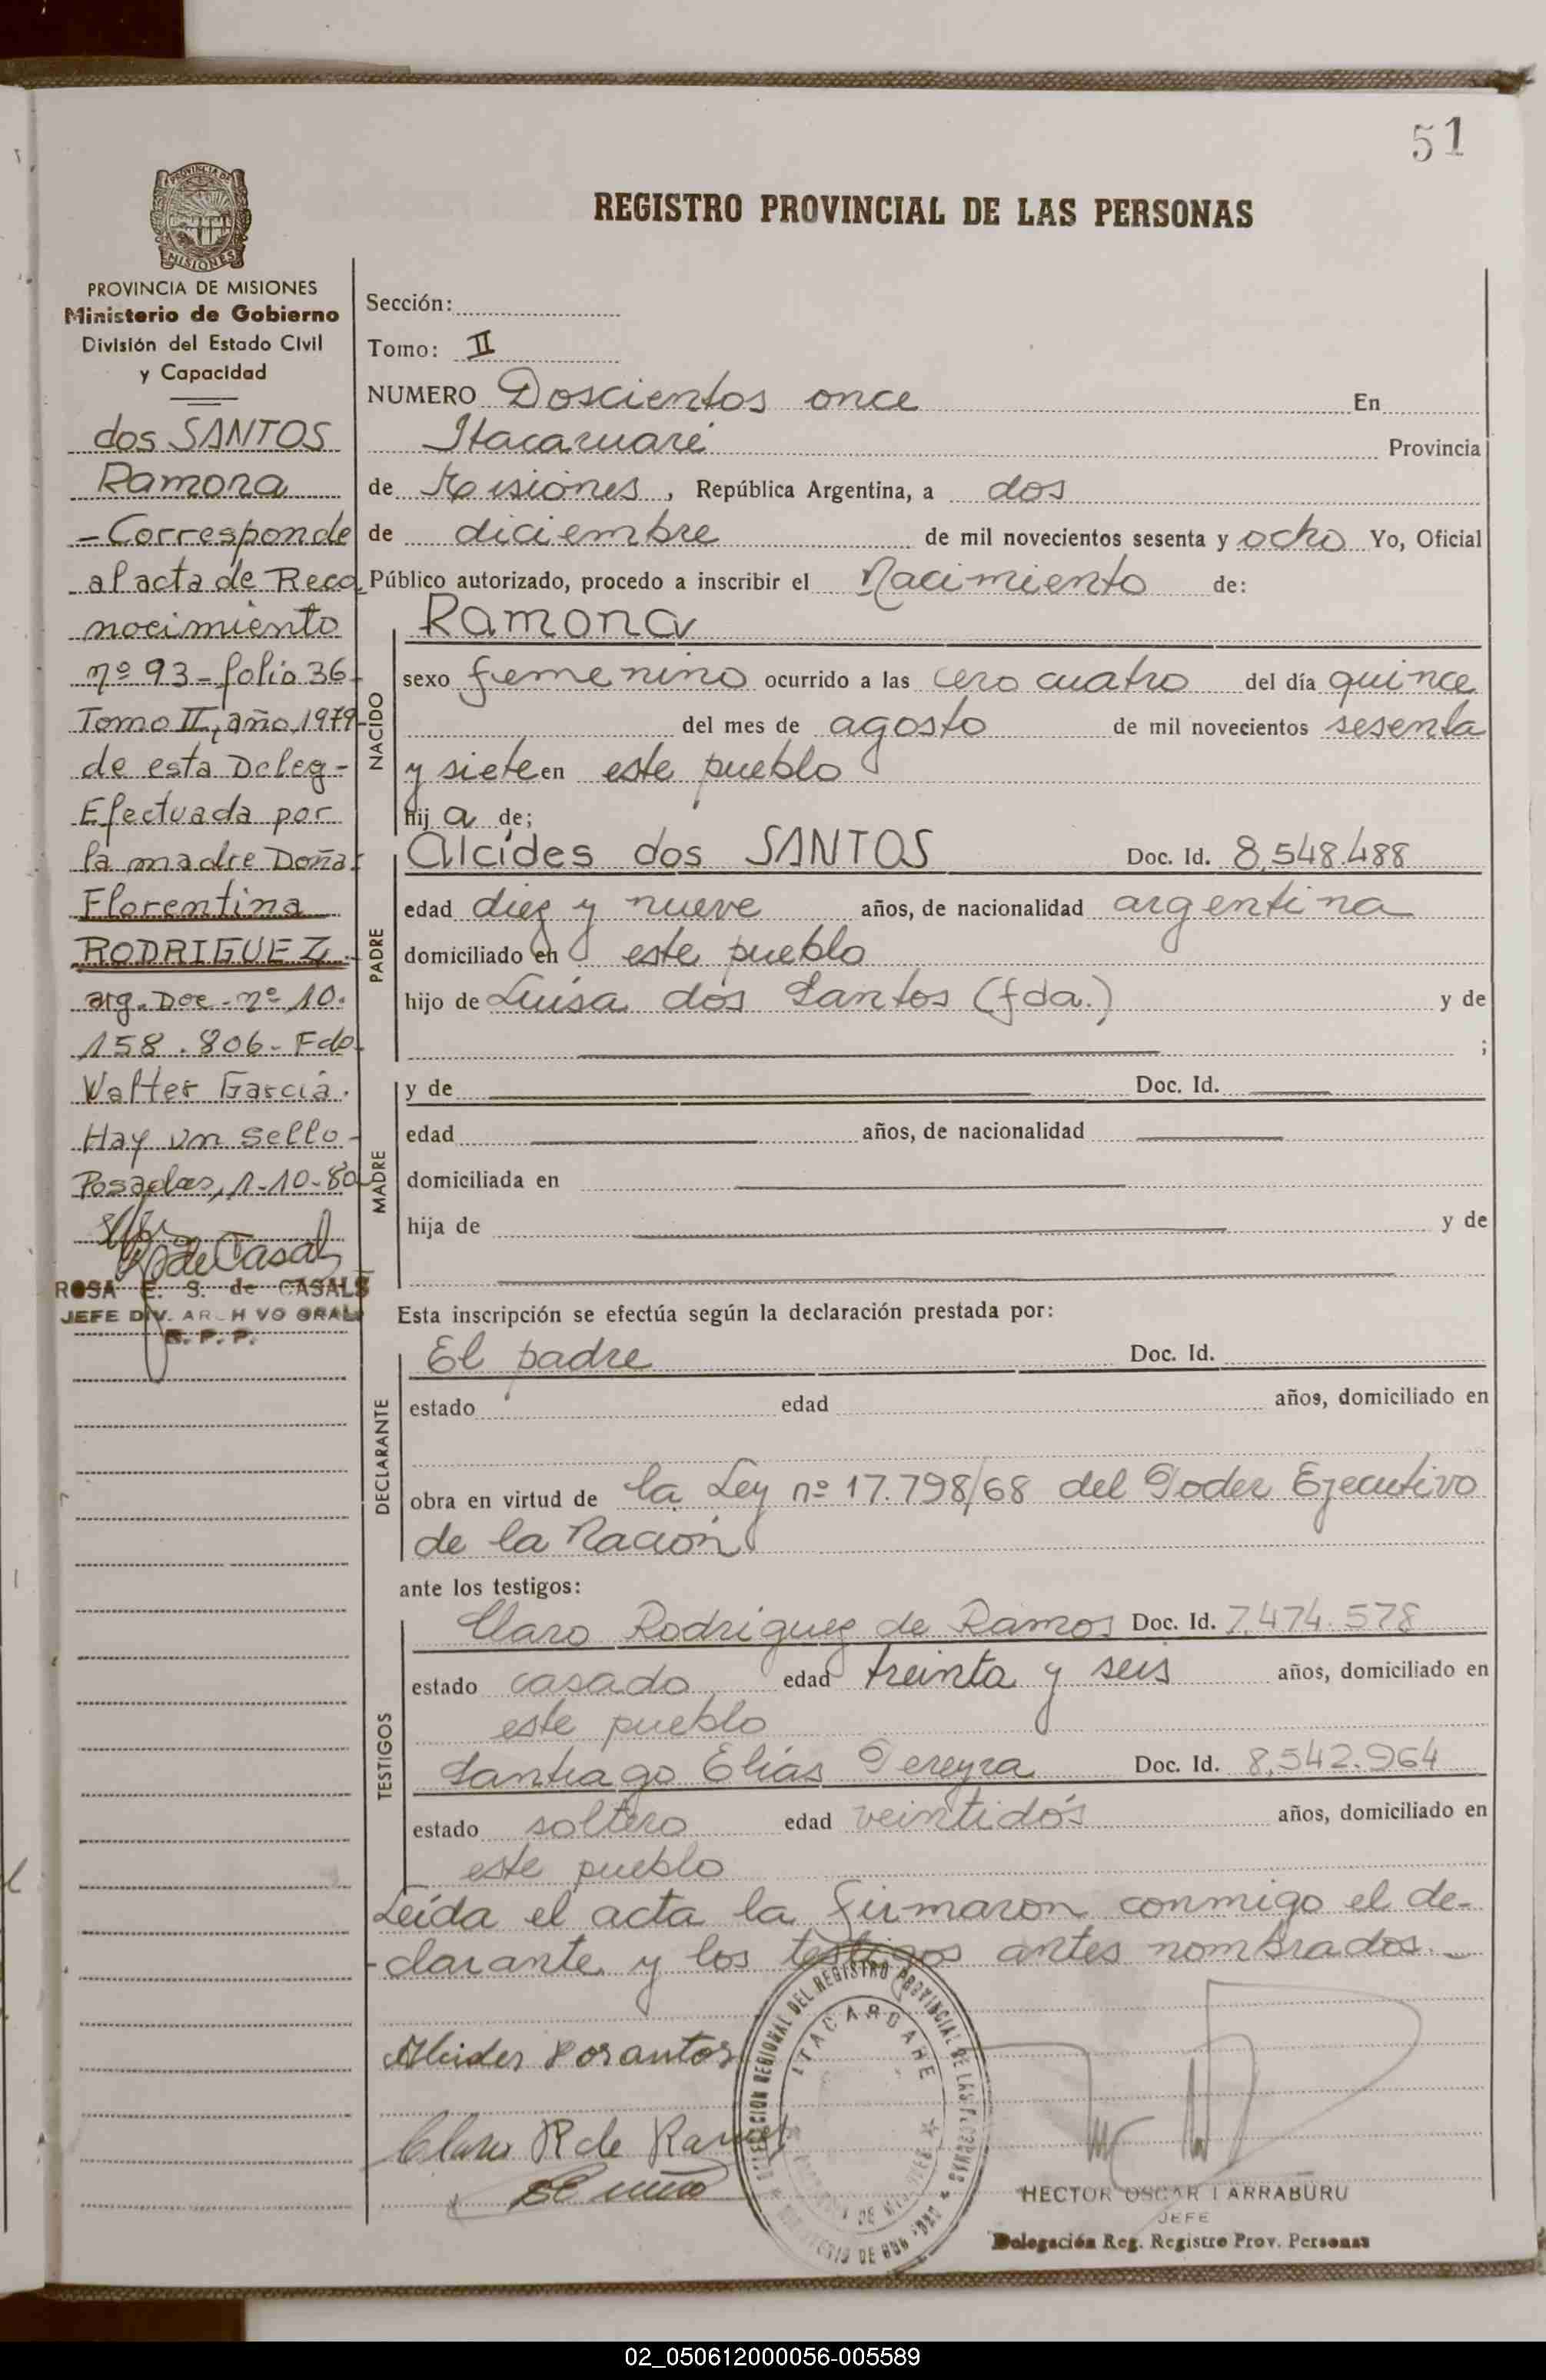 51
REGISTRO PROVINCIAL DE LAS PERSONAS
PROVINCIA DE MISIONES
Ministerio de Gobierno
División del Estado Civil
y Capacidad
dos SANTOS
Ramona
- Corresponde
al acta de Reco
nocimiento
nº 93 - folio 36-
Tomo II, año 1979-
de esta Deleg-
Efectuada por
la madre Doña:
Florentina
RODRIGUEZ.-
arg. Doc. nº 10.
158.806- Fdo.
Walter Garcia.
Hay un sello-
Posadas, 1-10-80
ROSA E. S. de CASALS
JEFE DIV. ARCH VO GRAL
R. P. P.
Sección:
Tomo: II
NUMERO Doscientos once En
Itacaruaré Provincia
de Misiones, República Argentina, a dos
de diciembre de mil novecientos sesenta y ocho Yo, Oficial
Público autorizado, procedo a inscribir el Nacimiento de:
NACIDO
Ramona
sexo femenino ocurrido a las cero cuatro del día quince
del mes de agosto de mil novecientos sesenta
y siete en este pueblo
hij a de;
PADRE
Alcides dos SANTOS Doc. Id. 8.548.488
edad diez y nueve años, de nacionalidad argentina
domiciliado en este pueblo
hijo de Luisa dos Santos (fda.) y de
;
MADRE
y de Doc. Id.
edad años, de nacionalidad
domiciliada en
hija de y de
Esta inscripción se efectúa según la declaración prestada por:
DECLARANTE
El padre Doc. Id.
estado edad años, domiciliado en
obra en virtud de la Ley nº 17.798/68 del Poder Ejecutivo
de la Nación
ante los testigos:
TESTIGOS
Claro Rodriguez de Ramos Doc. Id. 7.474.578
estado casado edad treinta y seis años, domiciliado en
este pueblo
Santiago Elías Pereyra Doc. Id. 8.542.964
estado soltero edad veintidós años, domiciliado en
este pueblo
Leída el acta la firmaron conmigo el de-
-clarante y los testigos antes nombrados.-
Alcides dosantos
Claro R de Ramos
DIRECCION REGIONAL DEL REGISTRO PROVINCIAL DE LAS PERSONAS
ITACAROARE
HECTOR OSCAR LARRABURU
JEFE
Delegación Reg. Registro Prov. Personas
02_050612000056-005589